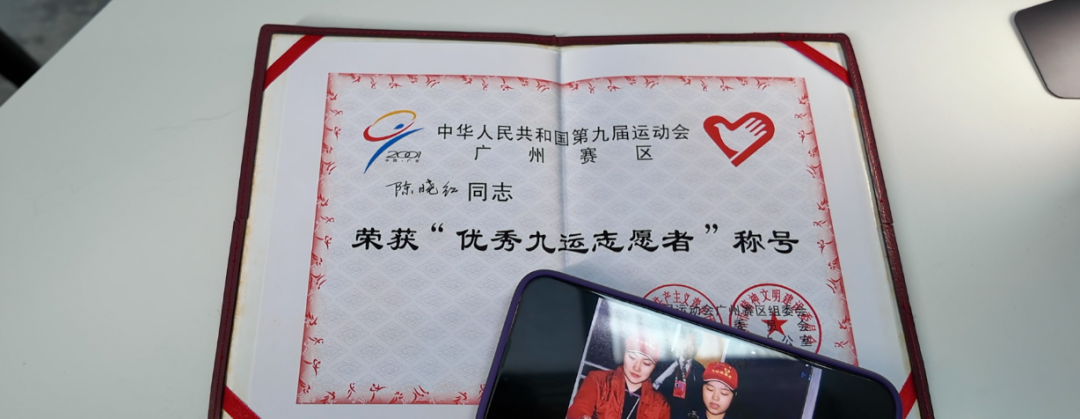 中华人民共和国第九届运动会
广州赛区
2001
陈晓红 同志
荣获“优秀九运志愿者”称号
运动会广州赛区组委会